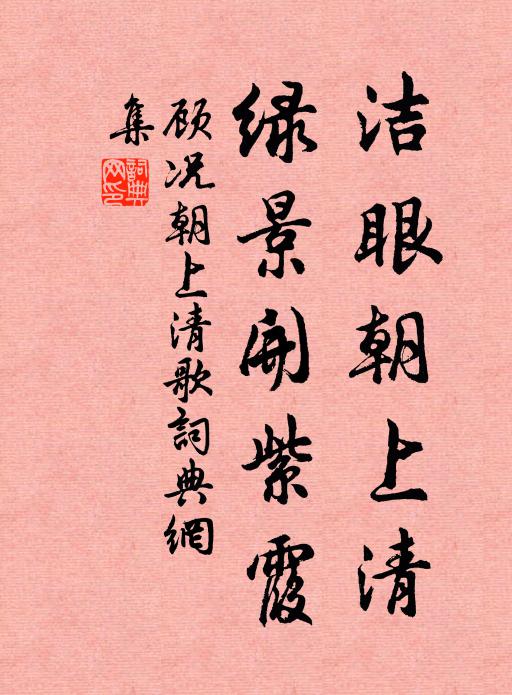 洁眼朝上清
绿景开紫霞
顾况朝上清歌词典網
集
詞典
网印